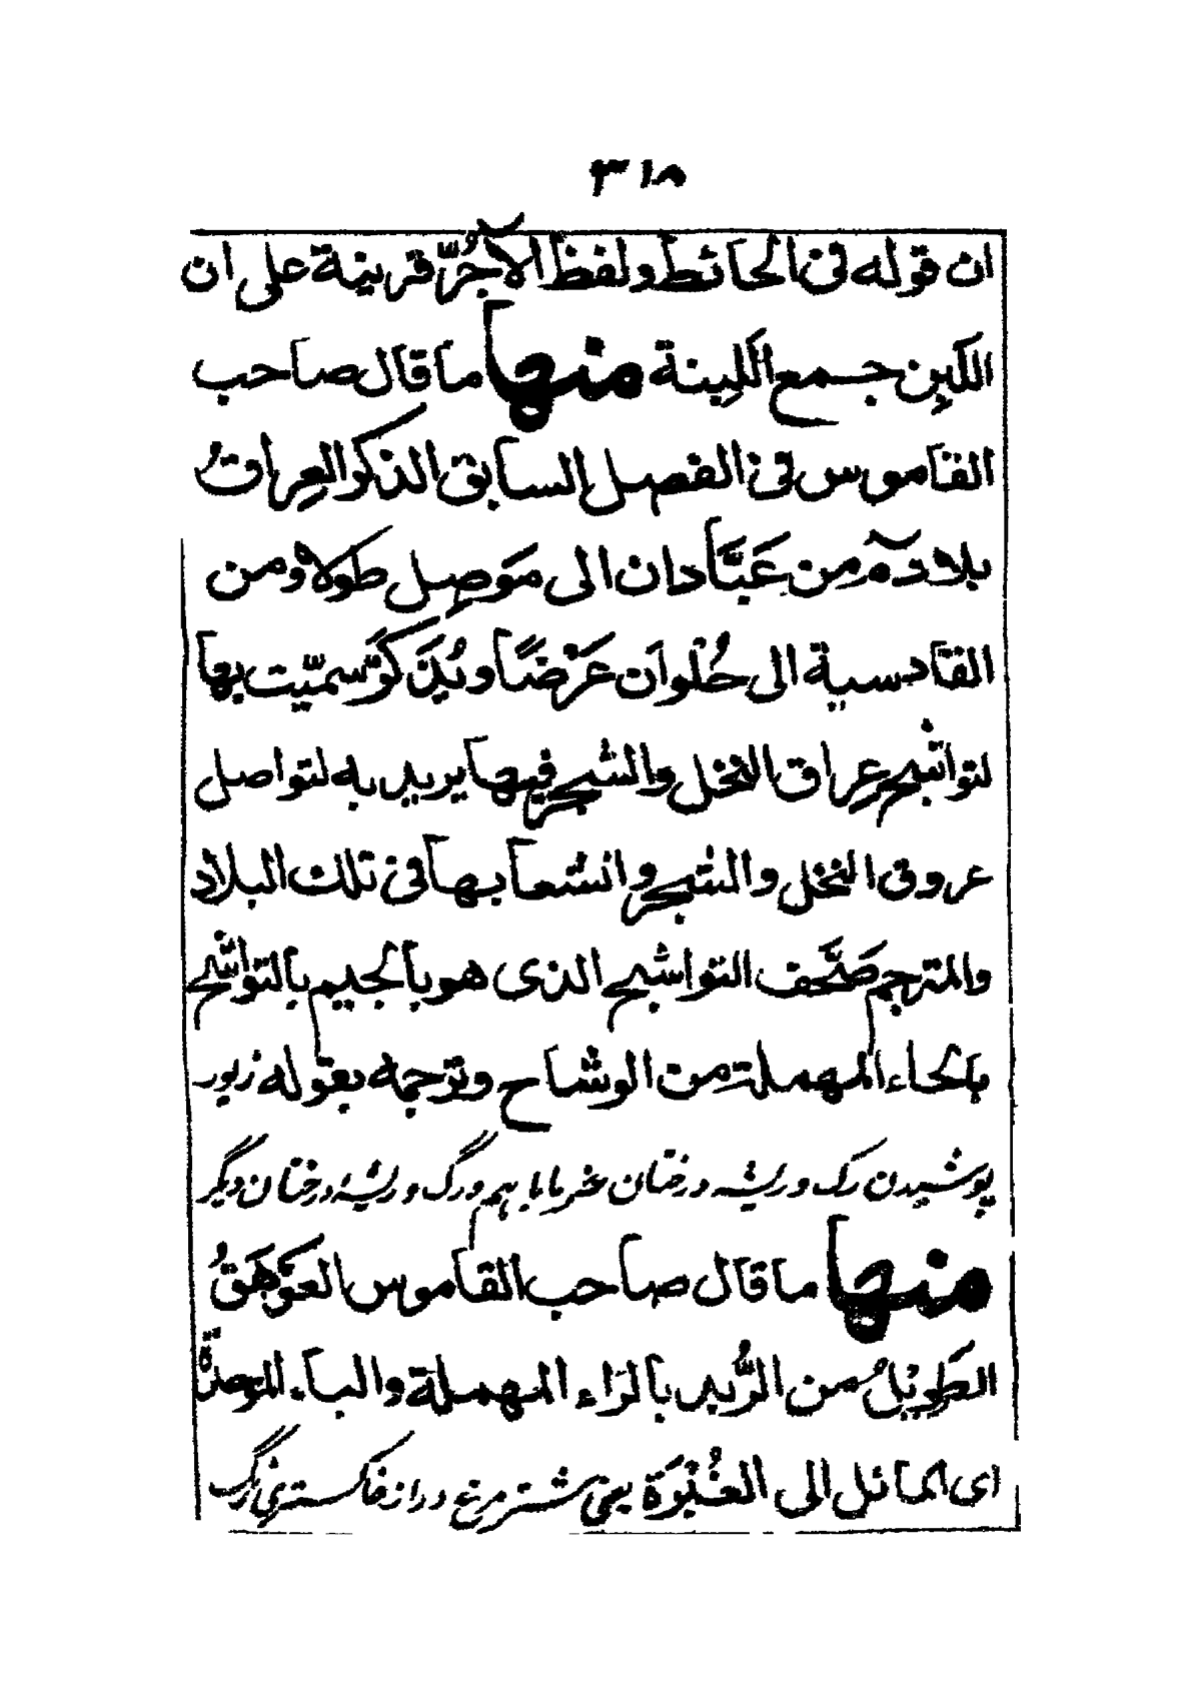 ٣١٨
ان قوله فى الحائط ولفظ الآجُرّ قرينة على ان
اللَبِن جمع اللَبِنة منها ما قال صاحب
القاموس فى الفصل السابق الذكر العِراقُ
بلادٌ مِن عَبَّادان الى مَوصِل طولا ومن
القادسية الى حُلْوان عَرْضًا ويُذَكَّر سمّيت بها
لتواشج عِراق النخل والشجر فيها يريد به لتواصل
عروق النخل والشجر وانشعابها فى تلك البلاد
والمترجم صَحَّف التواشج الذى هو بالجيم بالتواشح
بالحاء المهملة من الوشاح وترجمه بقوله زيور
پوشيدن رگ وريشه درختان خرما با هم ورگ وريشهٔ درختان ديگر
منها ما قال صاحب القاموس العَوْهَقُ
الطويلُ من الرُّبد بالراء المهملة والباء الموحدة
اى المائل الى الغُبْرَة يعنى شتر مرغ دراز خاكسترى رنگ